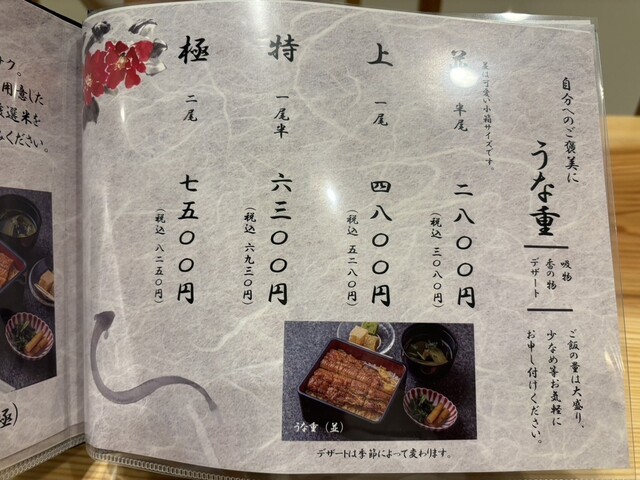 自分へのご褒美に
うな重
吸物
香の物
デザート
ご飯の量は大盛り、
少なめ等お気軽に
お申し付けください。
並は可愛い小箱サイズです。
並
半尾
二八〇〇円
(税込 三〇八〇円)
上
一尾
四八〇〇円
(税込 五二八〇円)
特
一尾半
六三〇〇円
(税込 六九三〇円)
極
二尾
七五〇〇円
(税込 八二五〇円)
うな重(並)
デザートは季節によって変わります。
用意した
ください。
極)